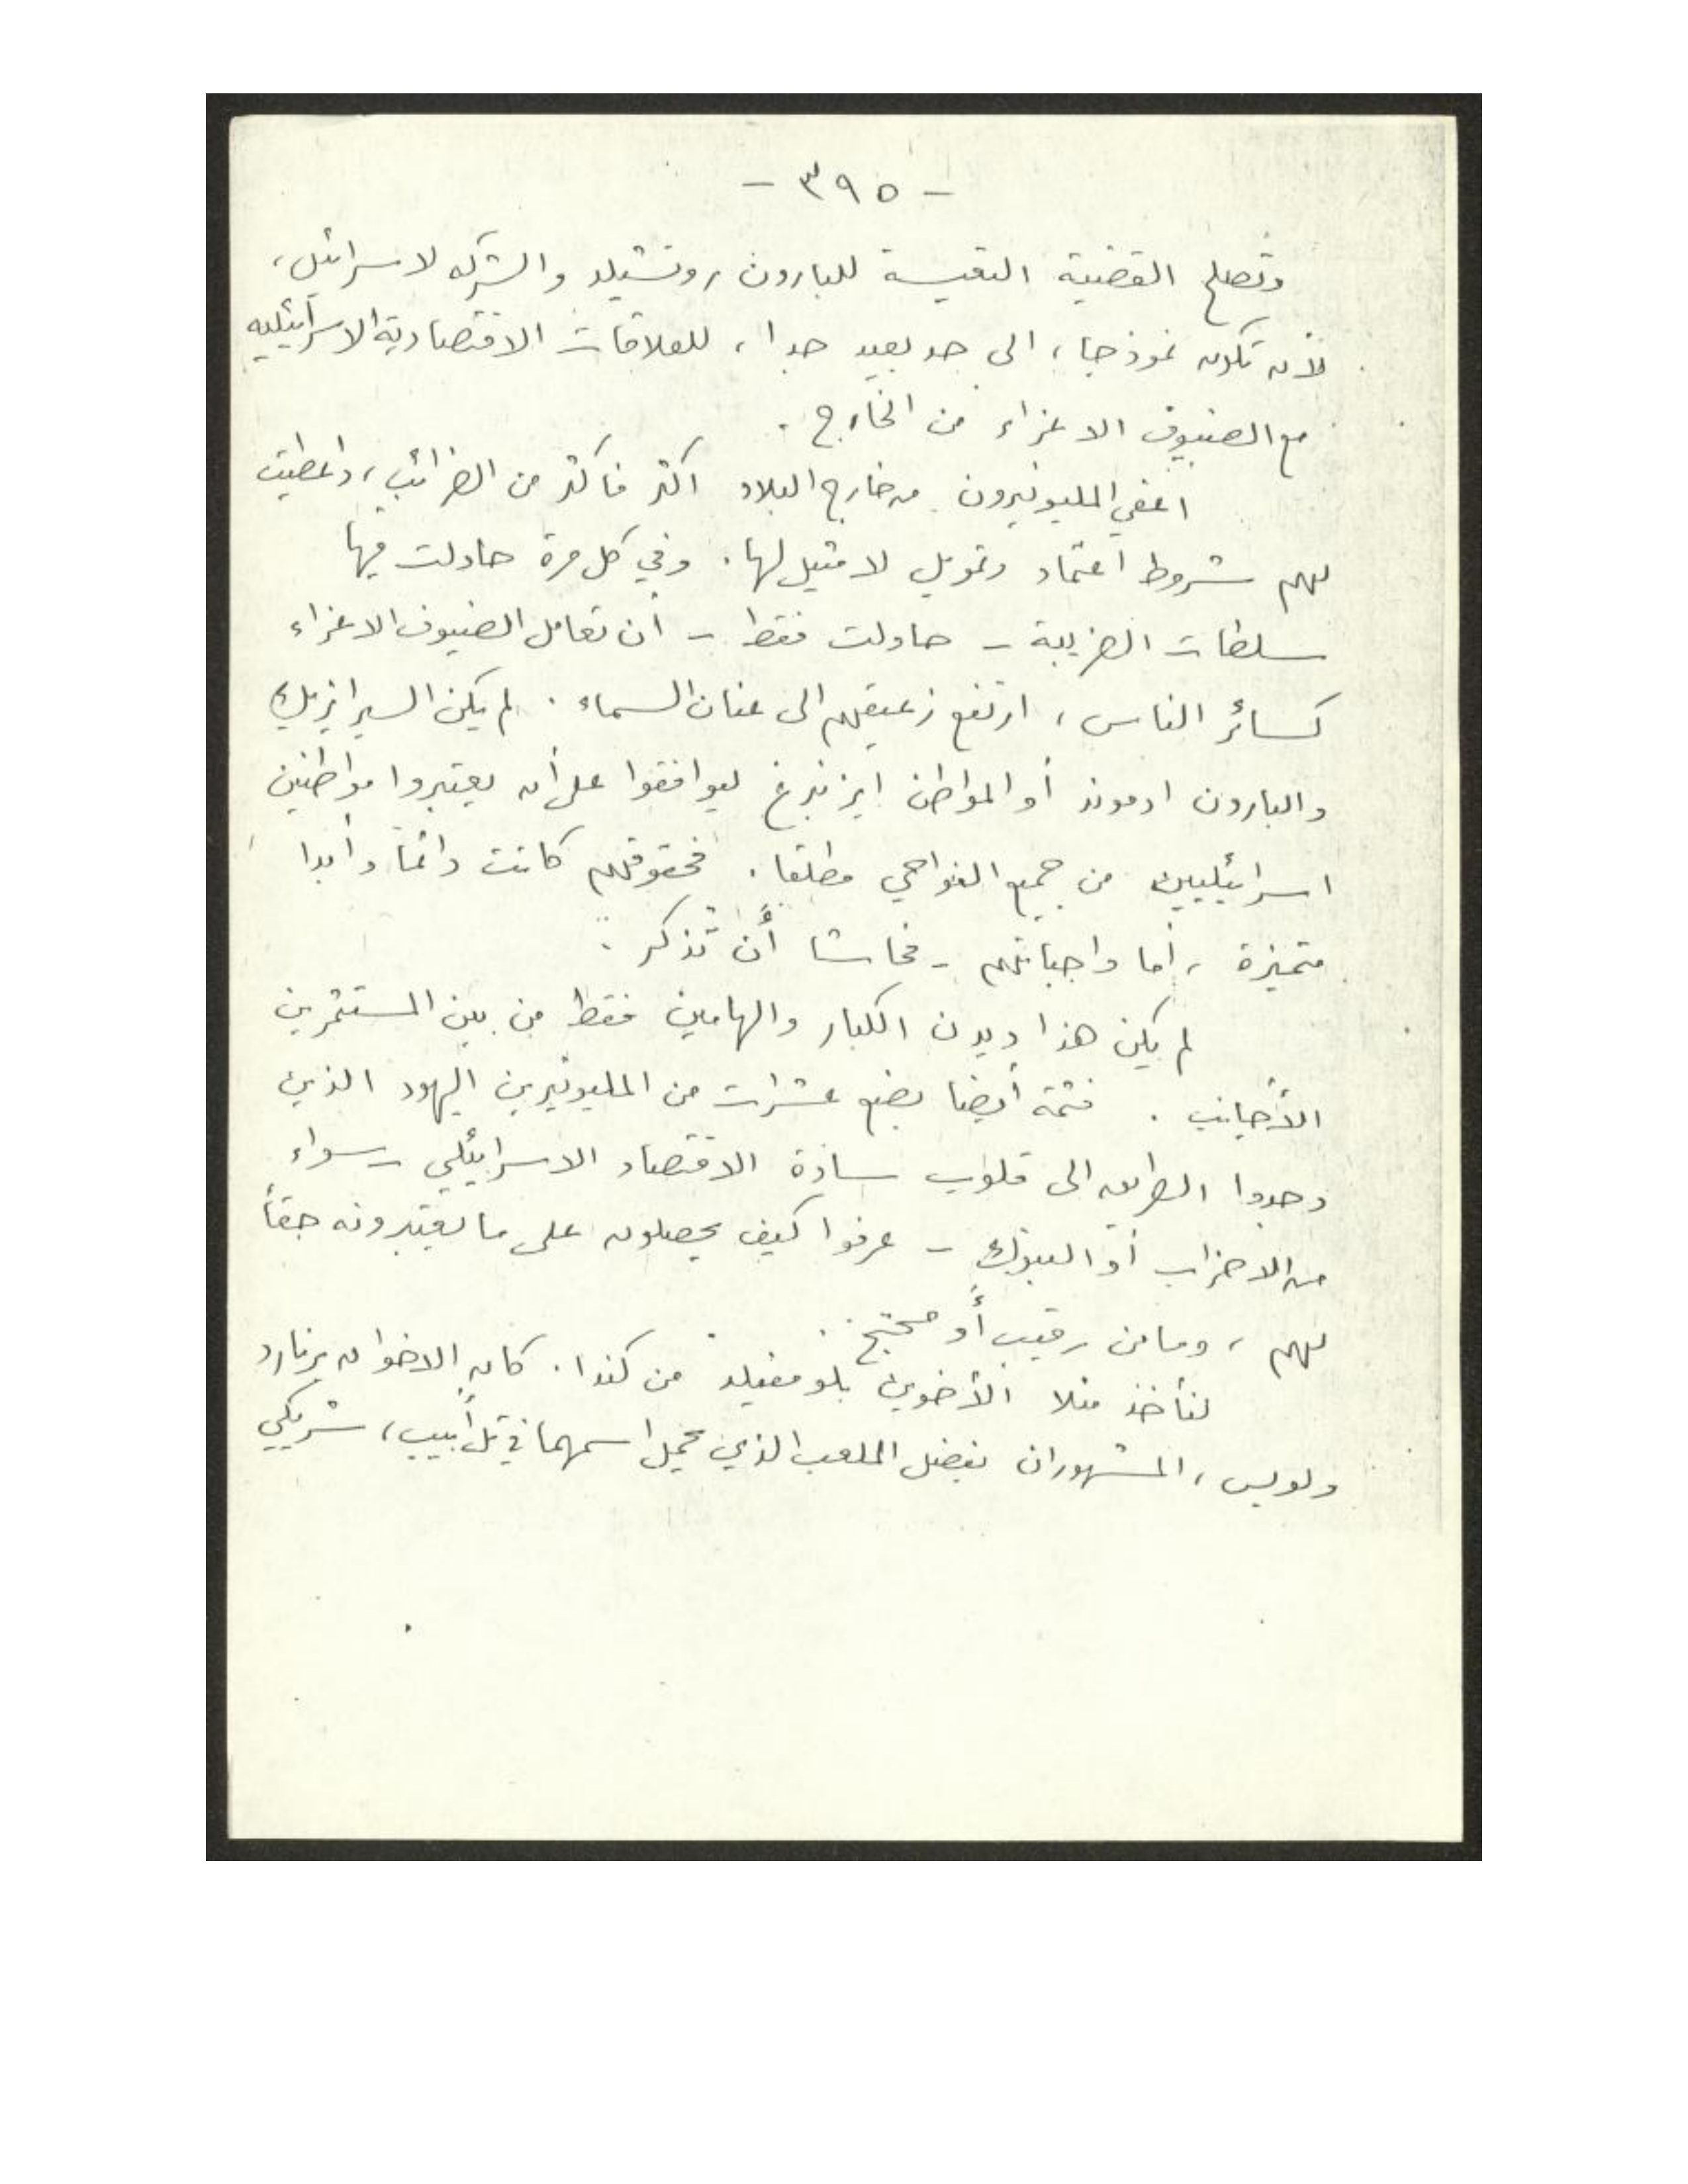 - ٣٩٥ -
وتصلح القضية التعيسة للبارون روتشيلد والشركة لاسرائيل،
لأن تكون نموذجا، الى حد بعيد جدا، للعلاقات الاقتصادية الاسرائيلية
مع الضيوف الاعزاء من الخارج .
اعفي المليونيرون من خارج البلاد اكثر فاكثر من الضرائب، واعطيت
لهم شروط اعتماد وتمويل لا مثيل لها . وفي كل مرة حاولت فيها
سلطات الضريبة - حاولت فقط - أن تعامل الضيوف الاعزاء
كسائر الناس ، ارتفع زعيقهم الى عنان السماء . لم يكن السير ايزيك
والبارون ادموند أو المواطن ايزنبرغ ليوافقوا على أن يعتبروا مواطنين
اسرائيليين من جميع النواحي مطلقا . فحقوقهم كانت دائماً وأبدا
متميزة ، أما واجباتهم - فحاشا أن تُذكر .
لم يكن هذا ديدن الكبار والهامين فقط من بين المستثمرين
الأجانب . فثمة أيضا بضع عشرات من المليونيرين اليهود الذين
وجدوا الطريق الى قلوب سادة الاقتصاد الاسرائيلي - سواء
من الاحزاب أو البنوك - عرفوا كيف يحصلون على ما يعتبرونه حقاً
لهم ، وما من رقيب أو محتج .
لنأخذ مثلا الأخوين بلومفيلد من كندا . كان الاخوان برنارد
ولويس ، المشهوران بفضل الملعب الذي يحمل اسمهما في تل أبيب ، شريكي